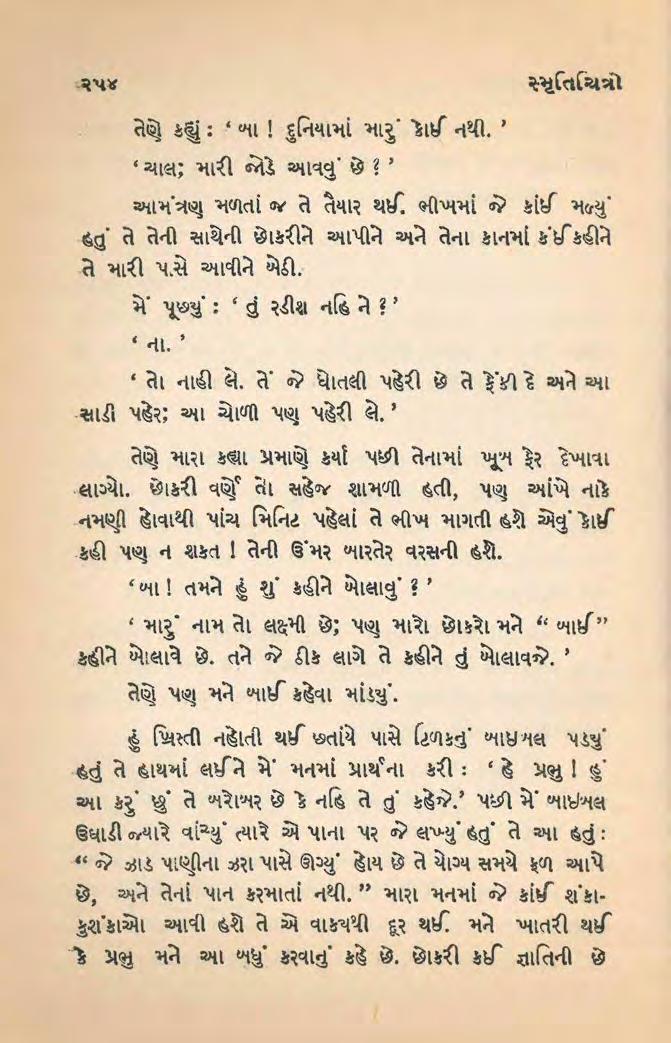 ૨૫૪ સ્મૃતિચિત્રો
તેણે કહ્યું : ‘ બા ! દુનિયામાં મારું કોઈ નથી. ’
‘ ચાલ; મારી જોડે આવવું છે ? ’
આમંત્રણ મળતાં જ તે તૈયાર થઈ. ભીખમાં જે કાંઈ મળ્યું
હતું તે તેની સાથેની છોકરીને આપીને અને તેના કાનમાં કંઈ કહીને
તે મારી પાસે આવીને બેઠી.
મેં પૂછ્યું : ‘ તું રડીશ નહિ ને ? ’
‘ ના. ’
‘ તો નાહી લે. તેં જે ધોતલી પહેરી છે તે ફેંકી દે અને આ
સાડી પહેર; આ ચોળી પણ પહેરી લે. ’
તેણે મારા કહ્યા પ્રમાણે કર્યા પછી તેનામાં ખૂબ ફેર દેખાવા
લાગ્યો. છોકરી વર્ણે તો સહેજ શામળી હતી, પણ આંખે નાકે
નમણી હોવાથી પાંચ મિનિટ પહેલાં તે ભીખ માગતી હશે એવું કોઈ
કહી પણ ન શકત ! તેની ઉંમર બારતેર વરસની હશે.
‘ બા ! તમને હું શું કહીને બોલાવું ? ’
‘ મારું નામ તો લક્ષ્મી છે; પણ મારો છોકરો મને “ બાઈ ”
કહીને બોલાવે છે. તને જે ઠીક લાગે તે કહીને તું બોલાવજે. ’
તેણે પણ મને બાઈ કહેવા માંડ્યું.
હું ખ્રિસ્તી નહોતી થઈ છતાંયે પાસે ટિળકનું બાઇબલ પડ્યું
હતું તે હાથમાં લઈને મેં મનમાં પ્રાર્થના કરી : ‘ હે પ્રભુ ! હું
આ કરું છું તે બરોબર છે કે નહિ તે તું કહેજે.’ પછી મેં બાઇબલ
ઉઘાડી જ્યારે વાંચ્યું ત્યારે એ પાના પર જે લખ્યું હતું તે આ હતું :
“ જે ઝાડ પાણીના ઝરા પાસે ઊગ્યું હોય છે તે યોગ્ય સમયે ફળ આપે
છે, અને તેનાં પાન કરમાતાં નથી. ” મારા મનમાં જે કાંઈ શંકા-
કુશંકાઓ આવી હશે તે એ વાક્યથી દૂર થઈ. મને ખાતરી થઈ
કે પ્રભુ મને આ બધું કરવાનું કહે છે. છોકરી કઈ જ્ઞાતિની છે